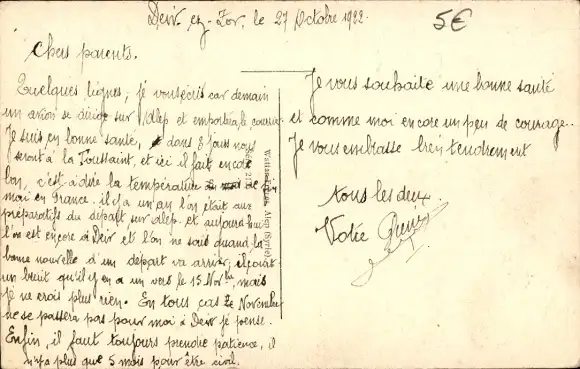 Deir-ez-Zor, le 27 Octobre 1922.
5€
Chers parents.
Quelques lignes, je vous écris car demain
un avion se dirige sur Alep et emportera le courrier.
Je suis en bonne santé, dans 3 jours nous
serons à la Toussaint, et ici il fait encore
bon, c'est à dire la température de
moi en France. il y a un an l'on était aux
préparatifs du départ sur Alep. et aujourd'hui
l'on est encore à Deir et l'on ne sais quand la
bonne nouvelle d'un depart va arriver, il court
un bruit qu'il y en a un vers le 15 Nov bre, mais
je ne crois plus rien. En tous cas le Novembre
ne se passera pas pour moi à Deir je pense.
Enfin, il faut toujours prendre patience, il
n'y a plus que 5 mois pour être civil.
Wattar Frères, Alep (Syrie)
Je vous souhaite une bonne santé
et comme moi encore un peu de courage..
Je vous embrasse bien tendrement
tous les deux.
Votre